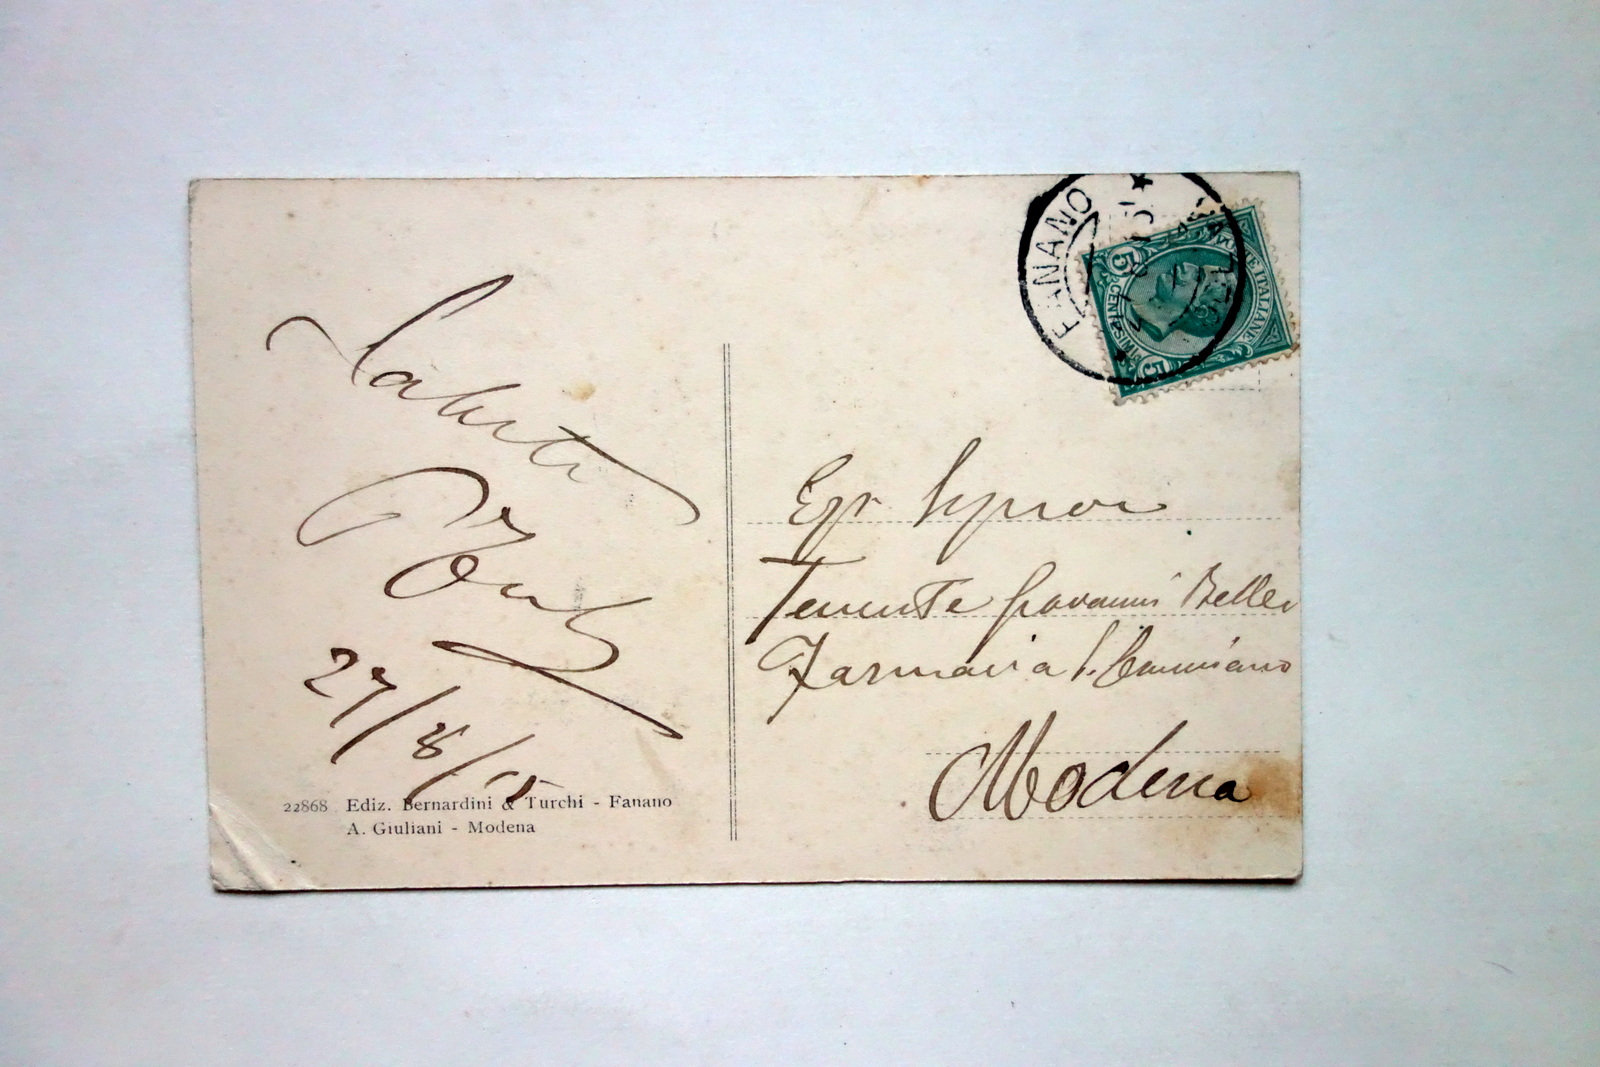 Saluti
27/8/15
22868 Ediz. Bernardini & Turchi - Fanano
A. Giuliani - Modena
FANANO
5 CENTESIMI 5
POSTE ITALIANE
Egr Signor
Tenente Giovanni Bellei
Farmacia S. Geminiano
Modena